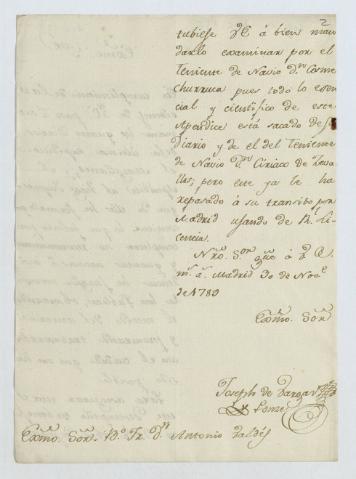 2
tubiese V.E. á bien man
darlo examinar por el
Teniente de Navio Dn. Cosme
Churruca pues todo lo esen
cial y cientifico de este
Apendice está sacado de su
Diario y de el del Teniente
de Navio Dn. Ciriaco de Zeva
llos, pero este ya le ha
repasado á su transito por
Madrid usando de Rl. Li
cencia.
Nro. Sor. gue. á V.E.
ms. as. Madrid 30 de Nove.
de 1789
Exmo. Sor.
Joseph de Vargas
Ponce
Exmo. Sor. Bo. Fr. Dn. Antonio Valdés